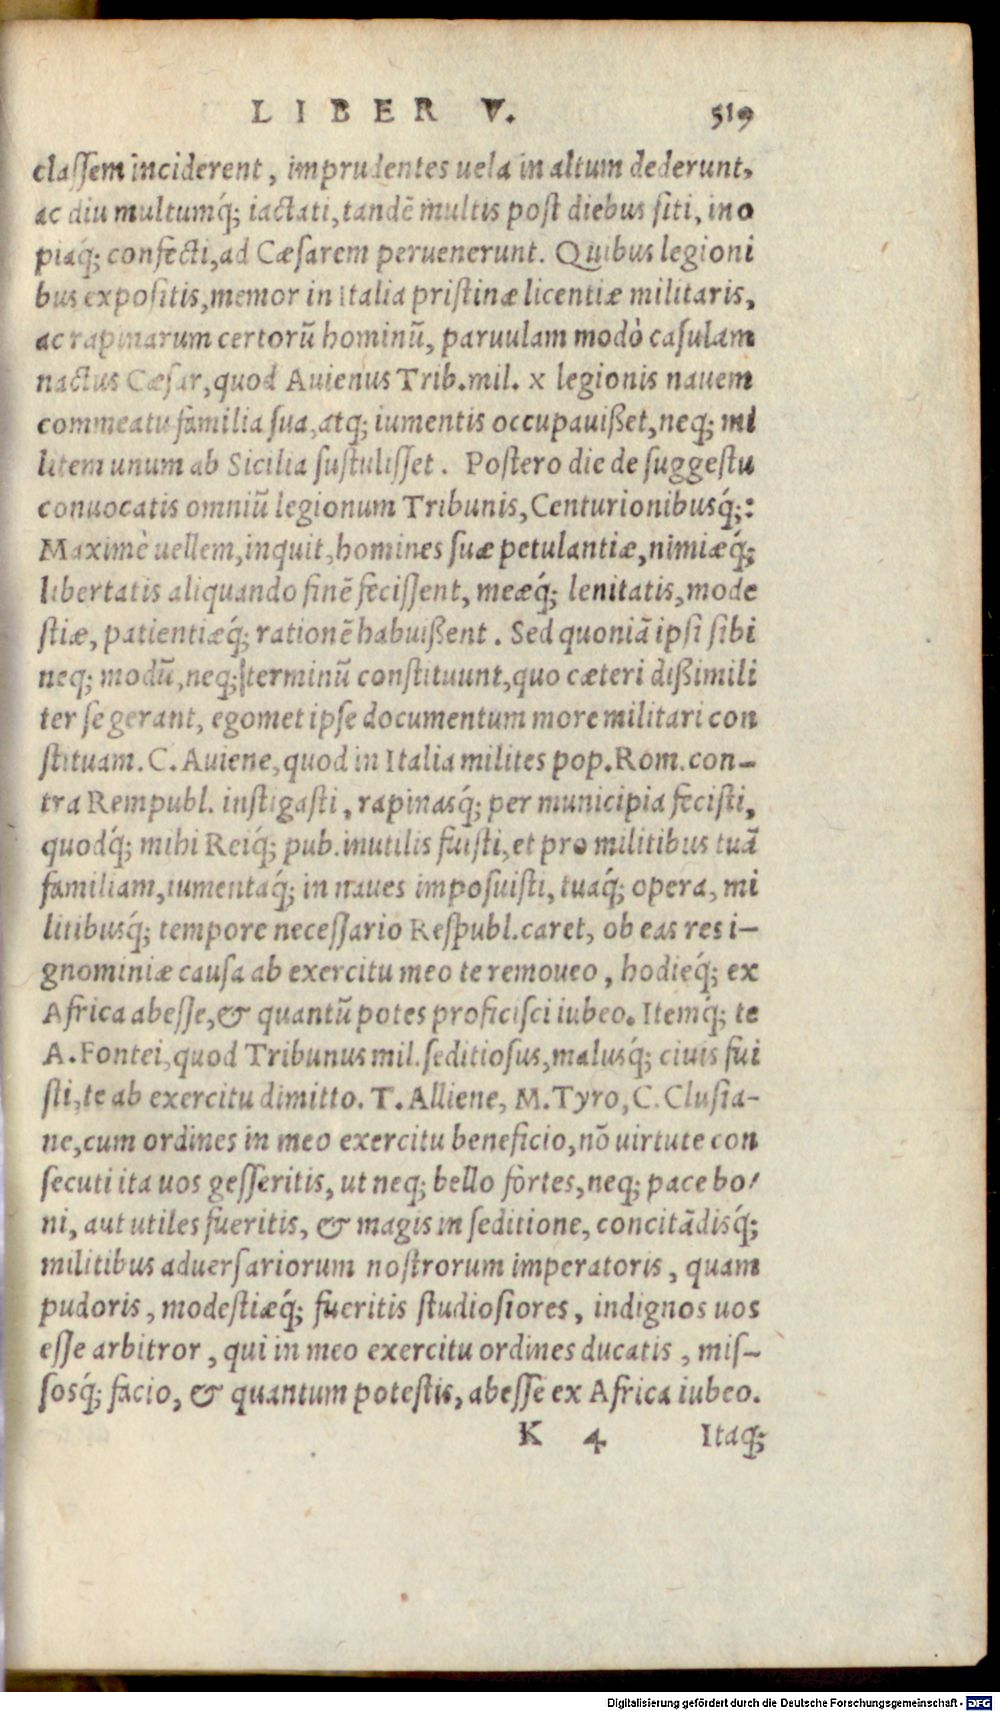 LIBER V. 519
claſſem inciderent, imprudentes uela in altum dederunt,
ac diu multumq́; iactati, tandē multis poſt diebus ſiti, ino
piaq́; confecti, ad Cæſarem peruenerunt. Quibus legioni
bus expoſitis, memor in Italia priſtinæ licentiæ militaris,
ac rapinarum certorū hominū, paruulam modò caſulam
nactus Cæſar, quod Auienus Trib. mil. x legionis nauem
commeatu familia ſua, atq; iumentis occupauißet, neq; mi
litem unum ab Sicilia ſuſtuliſſet. Poſtero die de ſuggeſtu
conuocatis omniū legionum Tribunis, Centurionibusq́;:
Maximè uellem, inquit, homines ſuæ petulantiæ, nimiæq́;
libertatis aliquando finē feciſſent, meæq́; lenitatis, mode
ſtiæ, patientiæq́; rationē habuißent. Sed quoniā ipſi ſibi
neq; modū, neq; terminū conſtituunt, quo cæteri dißimili
ter ſe gerant, egomet ipſe documentum more militari con
ſtituam. C. Auiene, quod in Italia milites pop. Rom. con-
tra Rempubl. inſtigaſti, rapinasq́; per municipia feciſti,
quodq́; mihi Reiq́; pub. inutilis fuiſti, et pro militibus tuā
familiam, iumentaq́; in naues impoſuiſti, tuaq́; opera, mi
litibusq́; tempore neceſſario Reſpubl. caret, ob eas res i-
gnominiæ cauſa ab exercitu meo te remoueo, hodieq́; ex
Africa abeſſe, & quantū potes proficiſci iubeo. Itemq́; te
A. Fontei, quod Tribunus mil. ſeditioſus, malusq́; ciuis fui
ſti, te ab exercitu dimitto. T. Alliene, M. Tyro, C. Cluſia-
ne, cum ordines in meo exercitu beneficio, nō uirtute con
ſecuti ita uos geſſeritis, ut neq; bello fortes, neq; pace bo-
ni, aut utiles fueritis, & magis in ſeditione, concitādisq́;
militibus aduerſariorum noſtrorum imperatoris, quam
pudoris, modeſtiæq́; fueritis ſtudioſiores, indignos uos
eſſe arbitror, qui in meo exercitu ordines ducatis, miſ-
ſosq́; facio, & quantum poteſtis, abeſſe ex Africa iubeo.
K 4 Itaq;
Digitalisierung gefördert durch die Deutsche Forschungsgemeinschaft - DFG